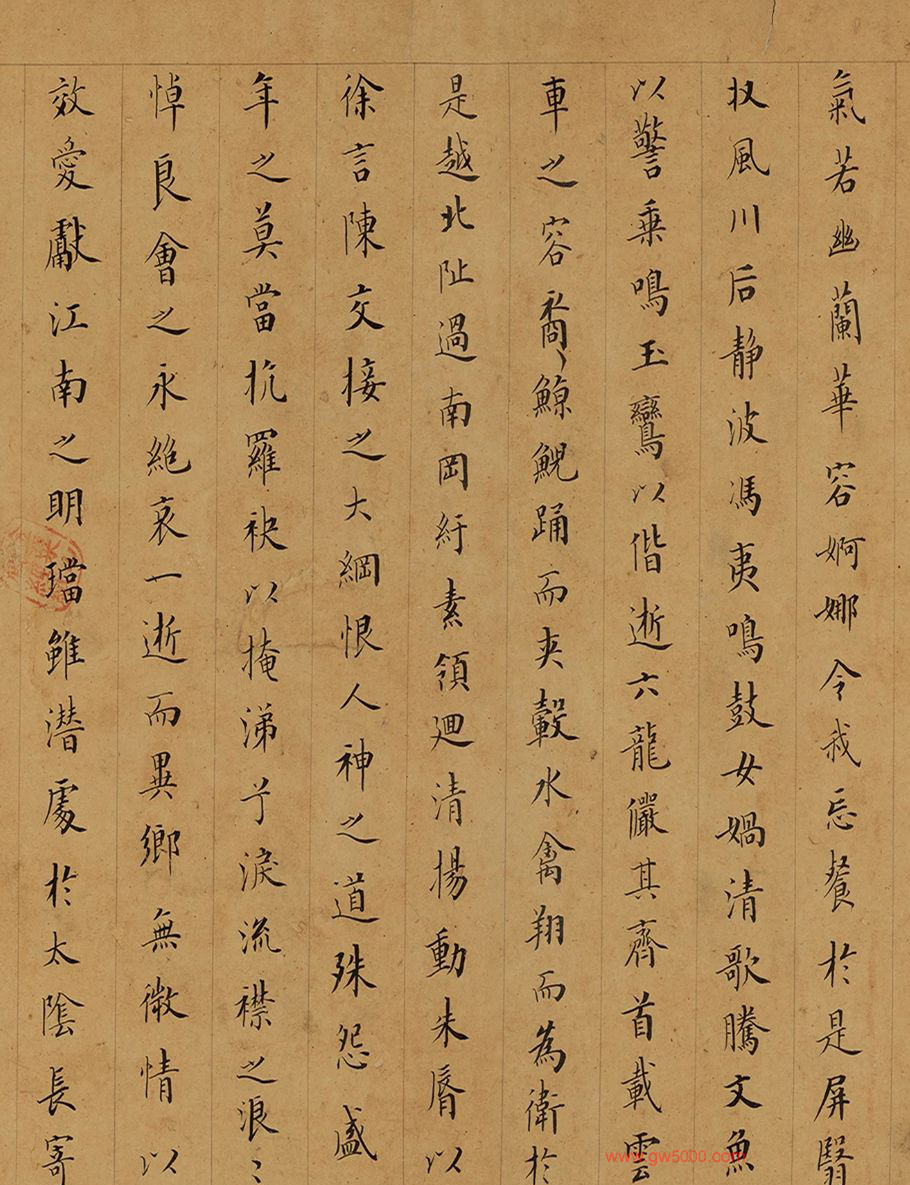 氣若幽蘭華容婀娜令我忘餐於是屏翳
收風川后靜波馮夷鳴鼓女媧清歌騰文魚
以警乘鳴玉鸞以偕逝六龍儼其齊首載雲
車之容裔鯨鯢踊而夾轂水禽翔而為衛於
是越北沚過南岡紆素領迴清揚動朱脣以
徐言陳交接之大綱恨人神之道殊怨盛
年之莫當抗羅袂以掩涕兮淚流襟之浪〻
悼良會之永絕哀一逝而異鄉無微情以
效愛獻江南之明璫雖潛處於太陰長寄
www.gw5000.com